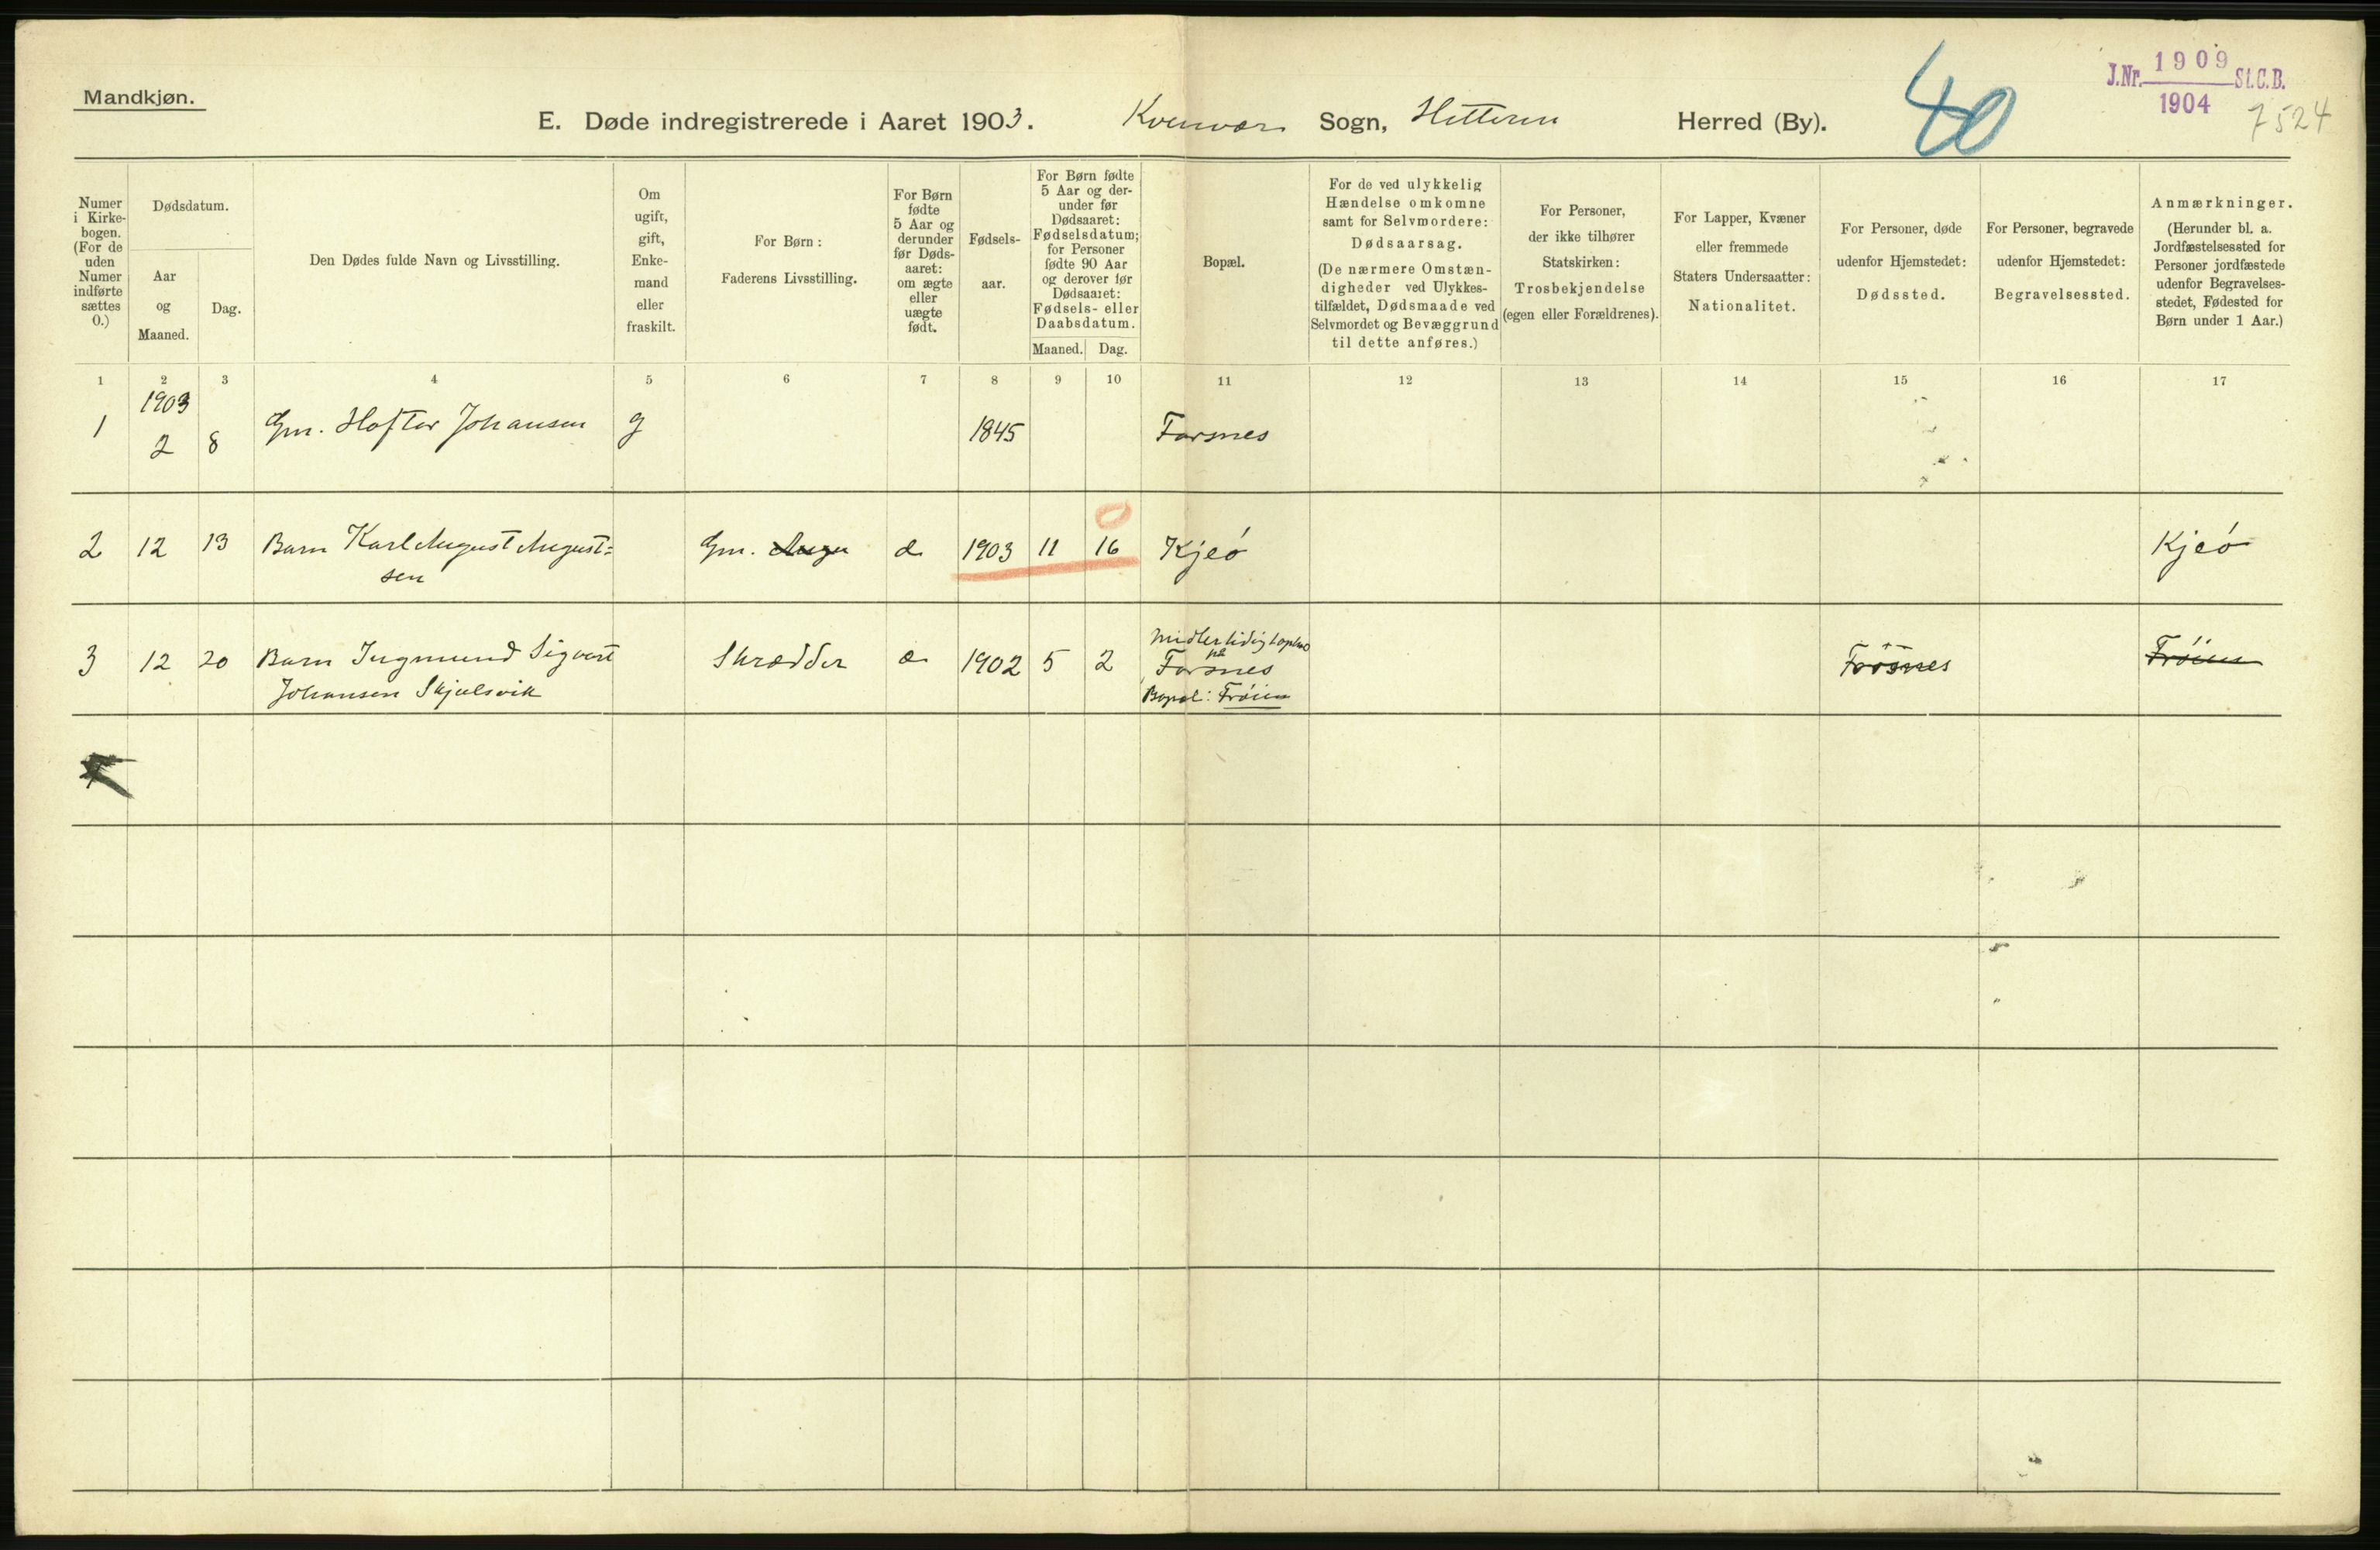 Mandkjøn.
E. Døde indregistrerede i Aaret 1903. Kvenvær Sogn, Hitteren Herred (By).
40
J.Nr. 1909 St.C.B.
1904
7524
Numer i Kirke-bogen. (For de uden Numer indførte sættes 0.)
Dødsdatum.
Aar og Maaned.
Dag.
Den Dødes fulde Navn og Livsstilling.
Om ugift, gift, Enke-mand eller fraskilt.
For Børn: Faderens Livsstilling.
For Børn fødte 5 Aar og derunder før Døds-aaret: om ægte eller uægte født.
Fødsels-aar.
For Børn fødte 5 Aar og der-under før Dødsaaret: Fødselsdatum; for Personer fødte 90 Aar og derover før Dødsaaret: Fødsels- eller Daabsdatum.
Maaned. Dag.
Bopæl.
For de ved ulykkelig Hændelse omkomne samt for Selvmordere: Dødsaarsag. (De nærmere Omstæn-digheder ved Ulykkes-tilfældet, Dødsmaade ved Selvmordet og Bevæggrund til dette anføres.)
For Personer, der ikke tilhører Statskirken: Trosbekjendelse (egen eller Forældrenes).
For Lapper, Kvæner eller fremmede Staters Undersaatter: Nationalitet.
For Personer, døde udenfor Hjemstedet: Dødssted.
For Personer, begravede udenfor Hjemstedet: Begravelsessted.
Anmærkninger. (Herunder bl. a. Jordfæstelsessted for Personer jordfæstede udenfor Begravelses-stedet, Fødested for Børn under 1 Aar.)
1 2 3 4 5 6 7 8 9 10 11 12 13 14 15 16 17
1903
1 2 8 Gm. Hoftor Johansen g 1845 Forsnes
0
2 12 13 Barn Karl August August= Gm. Augu æ 1903 11 16 Kjeö Kjeö
sen
Midlertidig
på
3 12 20 Barn Ingmund Sigvart Skrædder æ 1902 5 2 Forsnes Forsnes Fröien
Johansen Skjelsvik Bopæl: Fröien